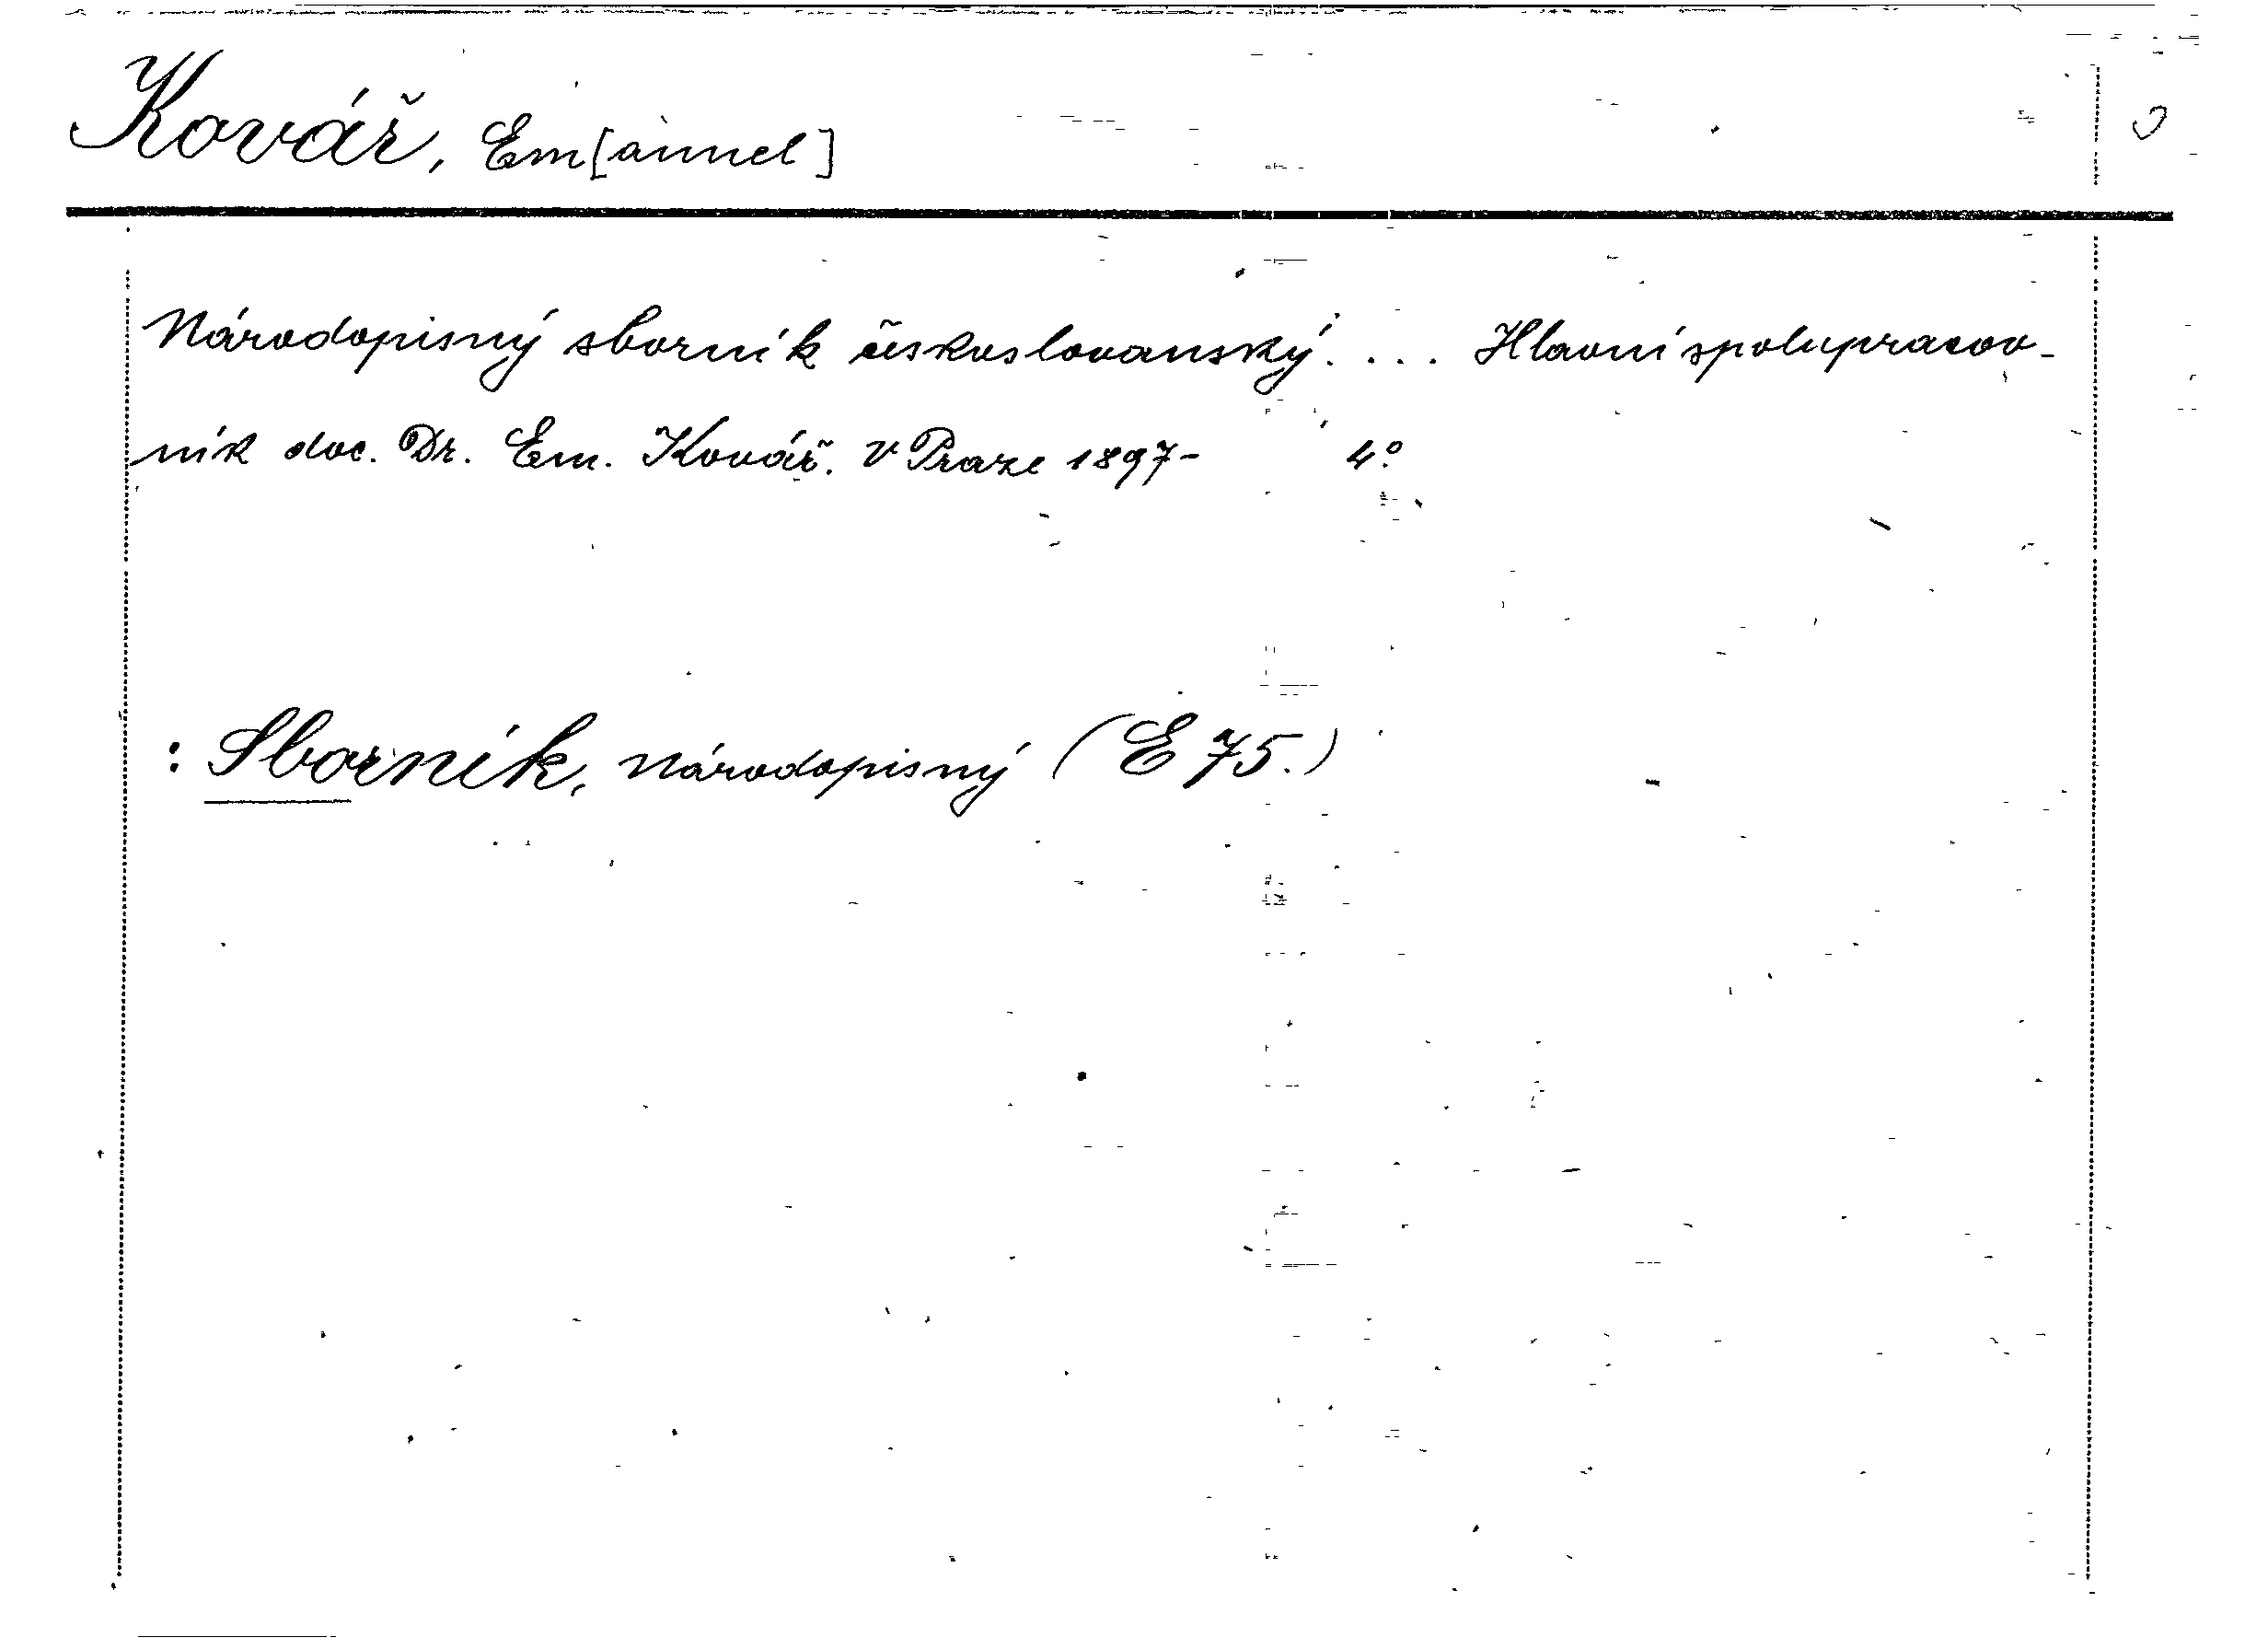 Kovář, Em[anuel]
Národopisný sborník českoslovanský. ... Hlavní spolupracov-
ník doc. Dr. Em. Kovář. V Praze 1897- 4°.
: Sborník, národopisný (E 75.)